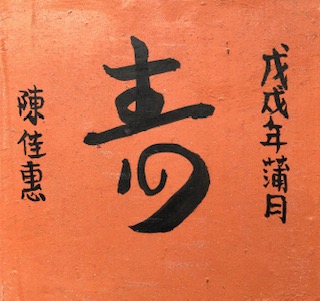 戊戌年蒲月
寿
陳佳惠